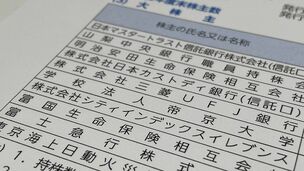 大株主
株主の氏名又は名称
日本マスタートラスト信託銀行株式会社(信託口)
山梨中央銀行職員持株会
明治安田生命保険相互会社
株式会社日本カストディ銀行(信託口)
株式会社三菱UFJ銀行
学校法人帝京大学
株式会社シティインデックスイレブンス
富国生命保険相互会社
富士急行株式
東京海上日動火
1. 持株数